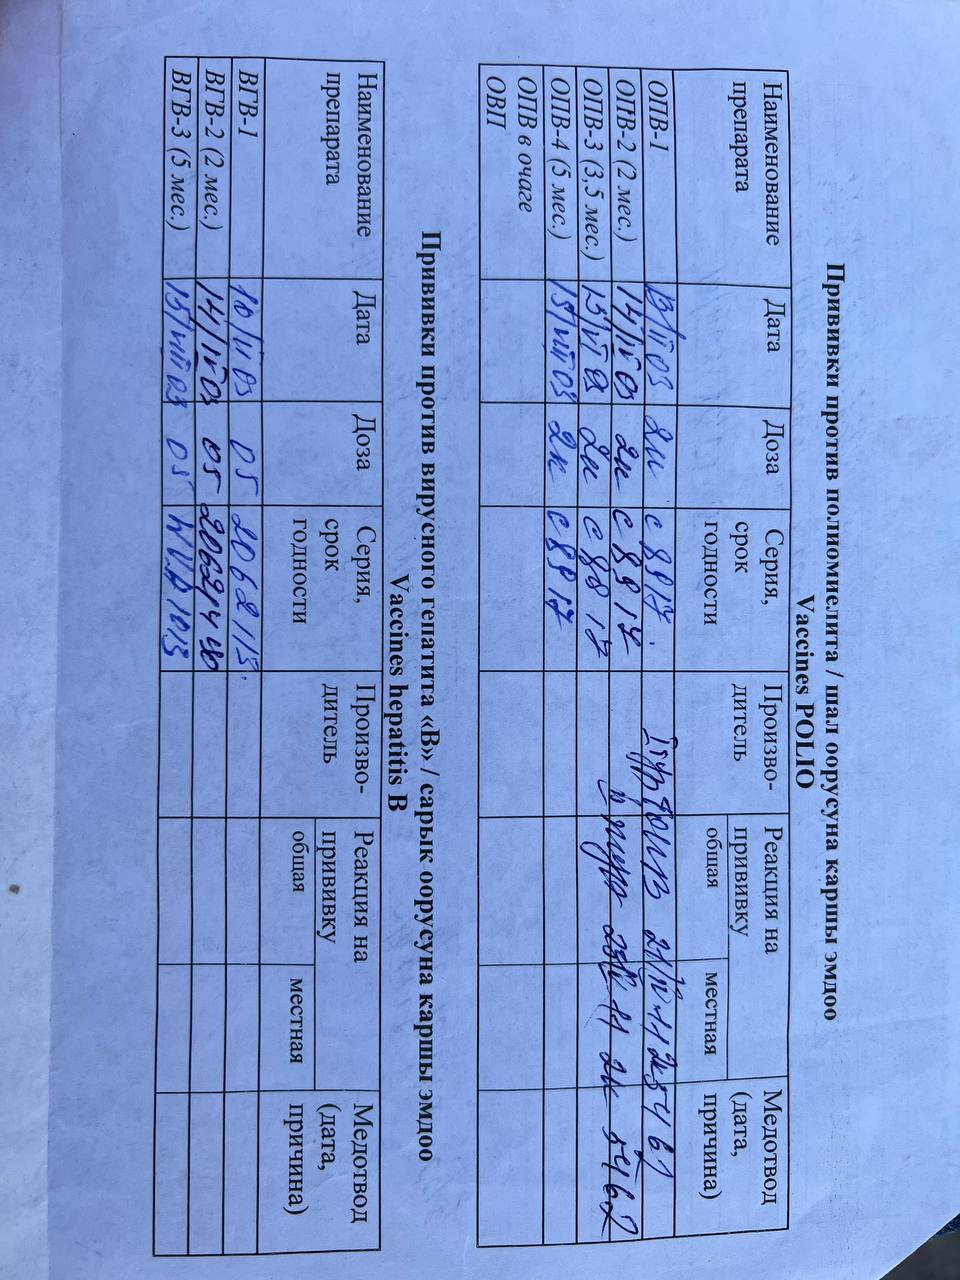 Прививки против полиомиелита / шал оорусуна каршы эмдоо
Vaccines POLIO
Наименование препарата Дата Доза Серия, срок годности Произво-дитель Реакция на прививку Медотвод (дата, причина)
общая местная
ОПВ-1 03 2к с 8817
ОПВ-2 (2 мес.) 14/IV 03 2к с 8817
ОПВ-3 (3,5 мес.) 15/VI 03 2к с 8817
ОПВ-4 (5 мес.) 15/VIII 03 2к с 8817
ОПВ в очаге
ОВП
II тур 2к 5462
Прививки против вирусного гепатита «В» / сарык оорусуна каршы эмдоо
Vaccines hepatitis B
Наименование препарата Дата Доза Серия, срок годности Произво-дитель Реакция на прививку Медотвод (дата, причина)
общая местная
ВГВ-1 10/II 03 05 2062113
ВГВ-2 (2 мес.) 14/IV 03 05
ВГВ-3 (5 мес.) 15/VIII 03 05